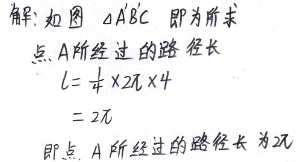 解:如图 △A'B'C 即为所求
点A所经过的路径长
l=1/4×2π×4
=2π
即点A所经过的路径长为2π